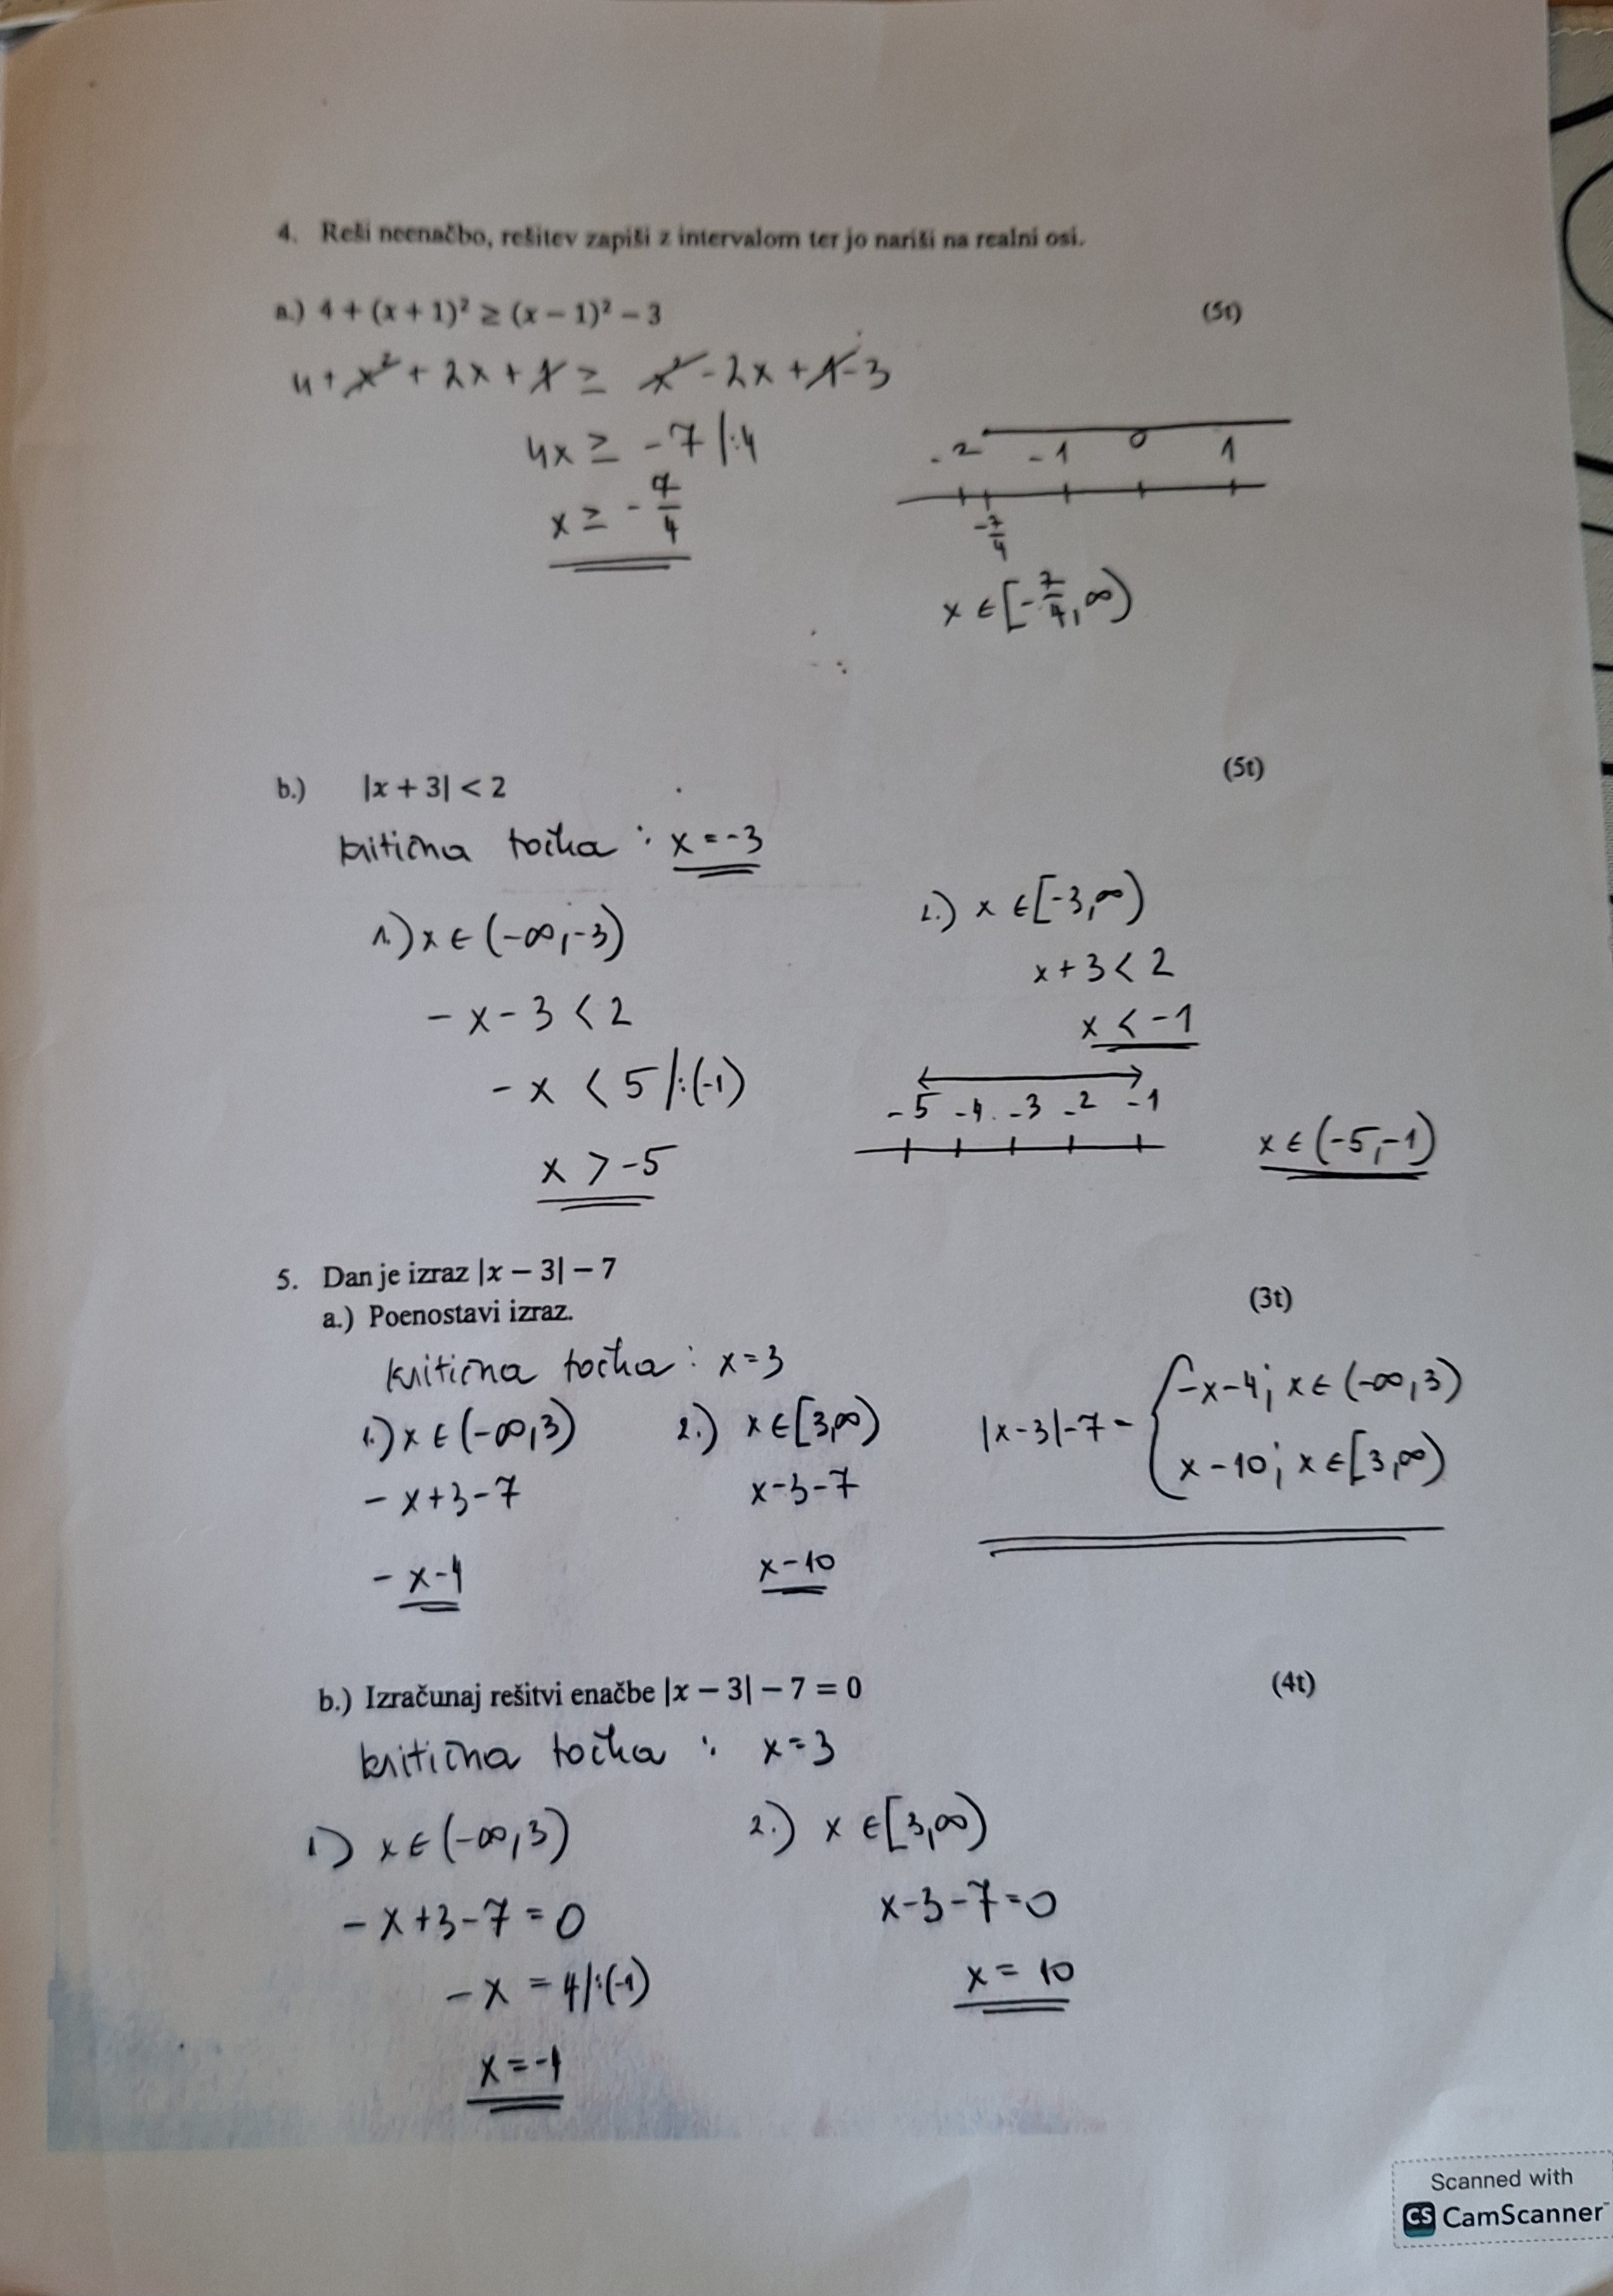 4. Reši neenačbo, rešitev zapiši z intervalom ter jo nariši na realni osi.
a.) 4 + (x + 1)² ≥ (x − 1)² − 3 (5t)
4 + x² + 2x + 1 ≥ x² - 2x + 1 - 3
4x ≥ -7 |:4
x ≥ -7/4
-2 -1 0 1
-7/4
x ∈ [-7/4, ∞)
b.) |x + 3| < 2 (5t)
kritična točka : x = -3
1.) x ∈ (-∞, -3)
- x - 3 < 2
- x < 5 /:(-1)
x > -5
2.) x ∈ [-3, ∞)
x + 3 < 2
x < -1
-5 -4 -3 -2 -1
x ∈ (-5, -1)
5. Dan je izraz |x − 3| − 7
a.) Poenostavi izraz. (3t)
kritična točka : x = 3
1.) x ∈ (-∞, 3) 2.) x ∈ [3, ∞)
- x + 3 - 7 x - 3 - 7
- x - 4 x - 10
|x - 3| - 7 = { -x - 4; x ∈ (-∞, 3)
x - 10; x ∈ [3, ∞)
b.) Izračunaj rešitvi enačbe |x − 3| − 7 = 0 (4t)
kritična točka : x = 3
1.) x ∈ (-∞, 3) 2.) x ∈ [3, ∞)
- x + 3 - 7 = 0 x - 3 - 7 = 0
- x = 4 /:(-1) x = 10
x = -4
Scanned with
CS CamScanner